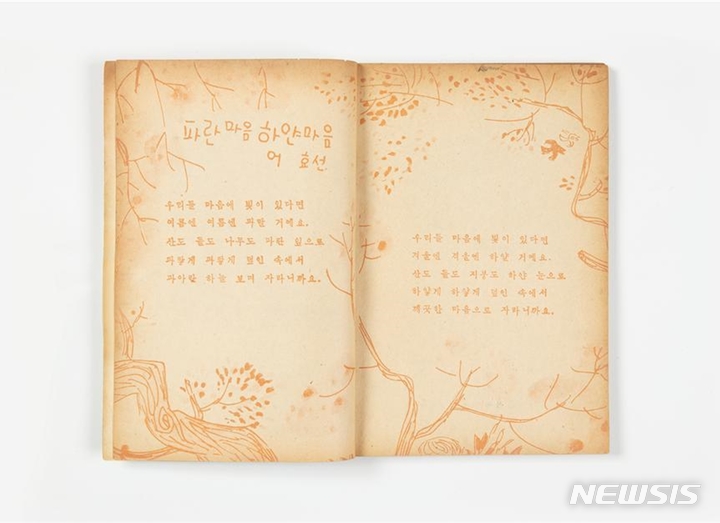 파란 마음 하얀 마음
어 효선
우리들 마음에 빛이 있다면
여름엔 여름엔 파랄 거예요.
산도 들도 나무도 파란 잎으로
파랗게 파랗게 덮인 속에서
파아란 하늘 보며 자라니까요.
우리들 마음에 빛이 있다면
겨울엔 겨울엔 하얄 거예요.
산도 들도 지붕도 하얀 눈으로
하얗게 하얗게 덮인 속에서
깨끗한 마음으로 자라니까요.
NEWSIS